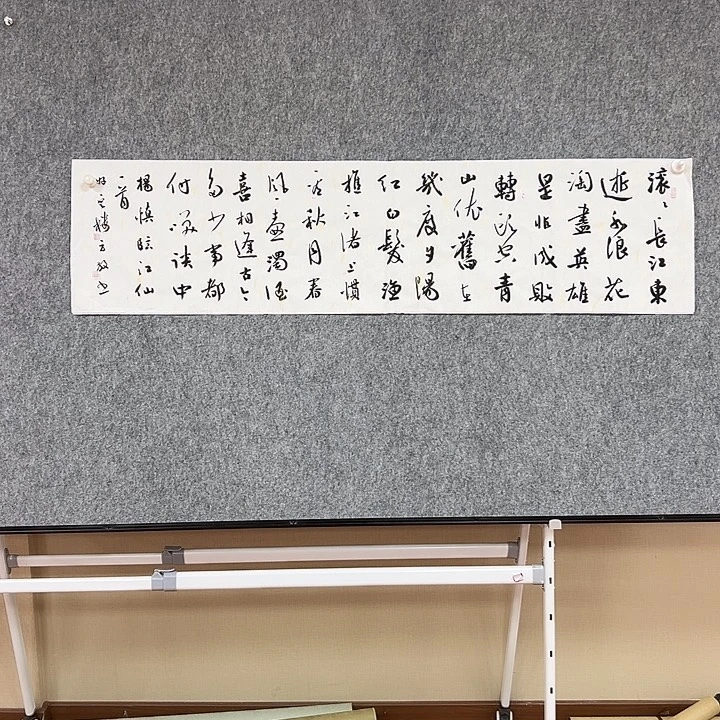 滚〻長江東
逝水浪花
淘盡英雄
是非成敗
轉頭空青
山依舊在
幾度夕陽
紅白髮漁
樵江渚上慣
看秋月春
風一壺濁酒
喜相逢古今
多少事都
付笑談中
楊慎臨江仙
一首